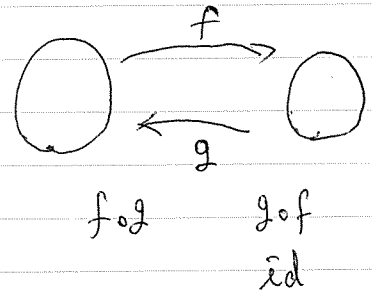 f
g
f∘g g∘f
id